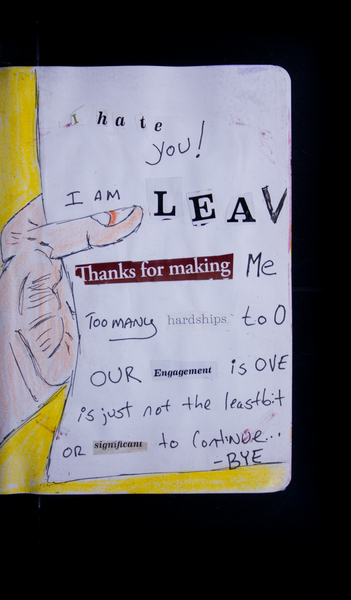 I hate
you!
I AM LEAV
Thanks for making Me
TOO MANy hardships to O
OUR Engagement is OVE
is just not the leastbit
OR significant to Continue...
-BYE